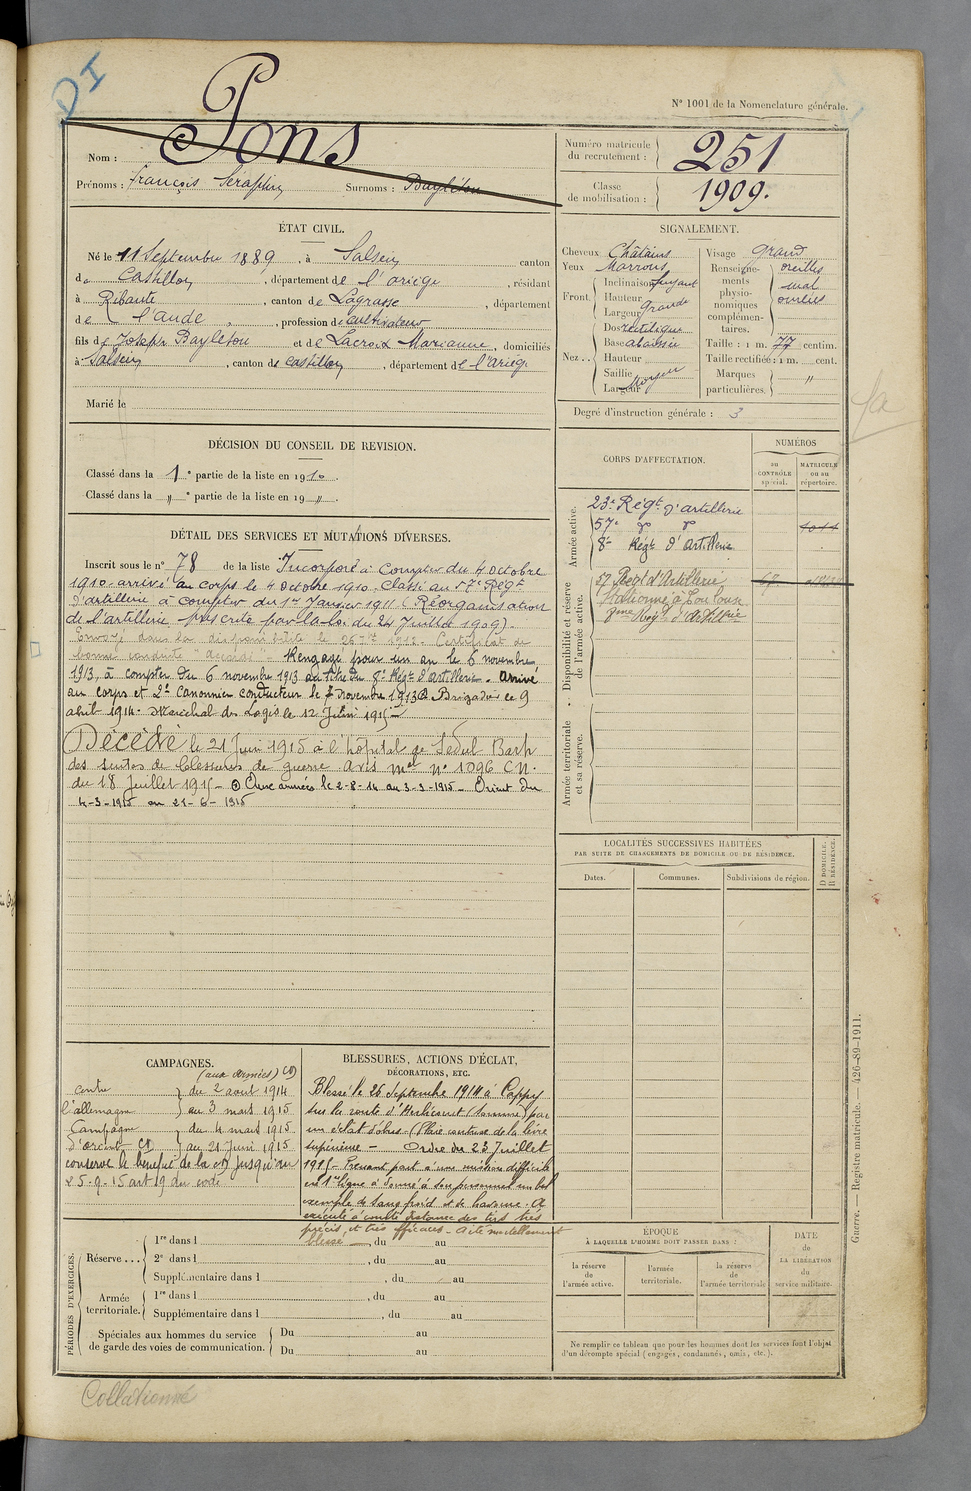 DI
N° 1001 de la Nomenclature générale.
Nom : Pons
Prénoms : François Séraphin Surnoms : Bayletou
Numéro matricule du recrutement : 251
Classe de mobilisation : 1909.
ÉTAT CIVIL.
Né le 11 Septembre 1889, à Salsein canton
de Castillon, département de l'ariège, résidant
à Ribaute, canton de Lagrasse, département
de l'aude, profession de cultivateur
fils de Joseph Bayletou et de Lacroix Marianne, domiciliés
à Salsein, canton de Castillon, département de l'Ariège
Marié le
SIGNALEMENT.
Cheveux Châtains
Yeux Marrons
Front. Inclinaison fuyant
Hauteur
Largeur grande
Nez... Dos rectiligne
Base abaissée
Hauteur
Saillie
Largeur Moyen
Visage grand
Renseignements physionomiques complémentaires. oreilles mal ourlées
Taille : 1 m. 77 centim.
Taille rectifiée : 1 m. cent.
Marques particulières. "
Degré d'instruction générale : 3
DÉCISION DU CONSEIL DE REVISION.
Classé dans la 1e partie de la liste en 1910.
Classé dans la " e partie de la liste en 19 ".
DÉTAIL DES SERVICES ET MUTATIONS DIVERSES.
Inscrit sous le n° 78 de la liste Incorporé à Compter du 4 Octobre
1910 arrivé au corps le 4 Octobre 1910. Classé au 57e Régt
d'artillerie à compter du 1er Janvier 1911 (Réorganisation
de l'artillerie prescrite par la loi du 24 Juillet 1909)
Envoyé dans la disponibilité le 26 1912. Certificat de
bonne conduite "accordé". Rengagé pour un an le 6 novembre
1913, à compter du 6 novembre 1913 au titre du 8e Régt d'Artillerie. Arrivé
au corps et 2e Canonnier conducteur le 7 novembre 1913. Brigadier le 9
abril 1914. Maréchal des Logis le 12 Juin 1915
Décédé le 21 Juin 1915 à l'hôpital de Sedul Barh
des suites de blessures de guerre avis mel n° 1096 CN.
du 18 Juillet 1915 - Aux armées le 2-8-14 au 3-3-1915 - Orient du
4-3-1915 au 21-6-1915
CORPS D'AFFECTATION.
NUMÉROS
au CONTRÔLE spécial.
MATRICULE ou au répertoire.
Armée active.
23e Régt d'artillerie
57e d° d° 4044
8e Régt d'Artillerie
Disponibilité et réserve de l'armée active.
57 Regt d'Artillerie
Stationné à Toulouse
8ème Régt d'Artillerie
Armée territoriale et sa réserve.
LOCALITÉS SUCCESSIVES HABITÉES
PAR SUITE DE CHANGEMENTS DE DOMICILE OU DE RÉSIDENCE.
Dates. Communes. Subdivisions de région. D DOMICILE. R RÉSIDENCE.
CAMPAGNES.
(aux Armées) CD
contre } du 2 aout 1914
l'allemagne } au 3 mars 1915
Campagne } du 4 mars 1915
d'orient } au 21 Juin 1915
conserve le bénéfice de la CD jusqu'au
25-9-15 art 19 du code
BLESSURES, ACTIONS D'ÉCLAT,
DÉCORATIONS, ETC.
Blessé le 26 Septembre 1914 à Cappy
sur la route d'Herlicourt (Somme) par
un éclat d'obus. (Plaie contuse de la lèvre
supérieure - Ordre du 23 Juillet
1915 - Prenant part à une mission difficile
en 1ère ligne a donné à son personnel un bel
exemple de sang froid et de bravoure. A
exécuté à courte distance des tirs très
précis et très efficaces - a été mortellement
blessé
PÉRIODES D'EXERCICES.
Réserve... 1re dans l , du au
2e dans l , du au
Supplémentaire dans l , du au
Armée territoriale. 1re dans l , du au
Supplémentaire dans l , du au
Spéciales aux hommes du service de garde des voies de communication. Du au
Du au
ÉPOQUE
À LAQUELLE L'HOMME DOIT PASSER DANS :
la réserve de l'armée active.
l'armée territoriale.
la réserve de l'armée territoriale
DATE de LA LIBÉRATION du service militaire.
Ne remplir ce tableau que pour les hommes dont les services font l'objet
d'un décompte spécial (engagés, condamnés, omis, etc.).
Guerre. — Registre matricule. — 426-89-1911.
Collationné